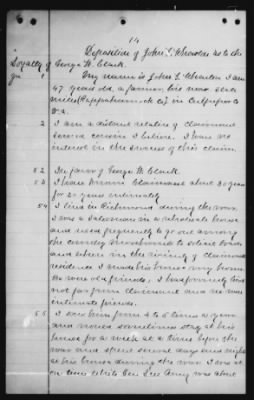 14
Deposition of John L. Wheadon as to the
Loyalty of George W. Clark.
My name is John L. Wheadon I am
47 years old, a farmer, live now
miles (Rappahannock Co) in Culpeper Co
Va.
2 I am a distant relative of claimant
second cousin I believe. I have no
interest in the success of this claim.
52 In favor of George W. Clark.
53 I have known Claimant about 30 years
for 25 years intimately
54 I lived in Richmond during the war.
I was a salesman in a wholesale house
and used frequently to go out among
the country merchants to solicit trade
and when in the vicinity of claimant's
residence I made his house my home.
We were old friends, I had formerly lived
not far from claimant and we were
intimate friends.
55 I saw him from 4 to 5 times a year
and would sometimes stay at his
house for a week at a time before the
war and spent several days and nights
at his house during the war. I was at
one time while Gen Lee Army was about